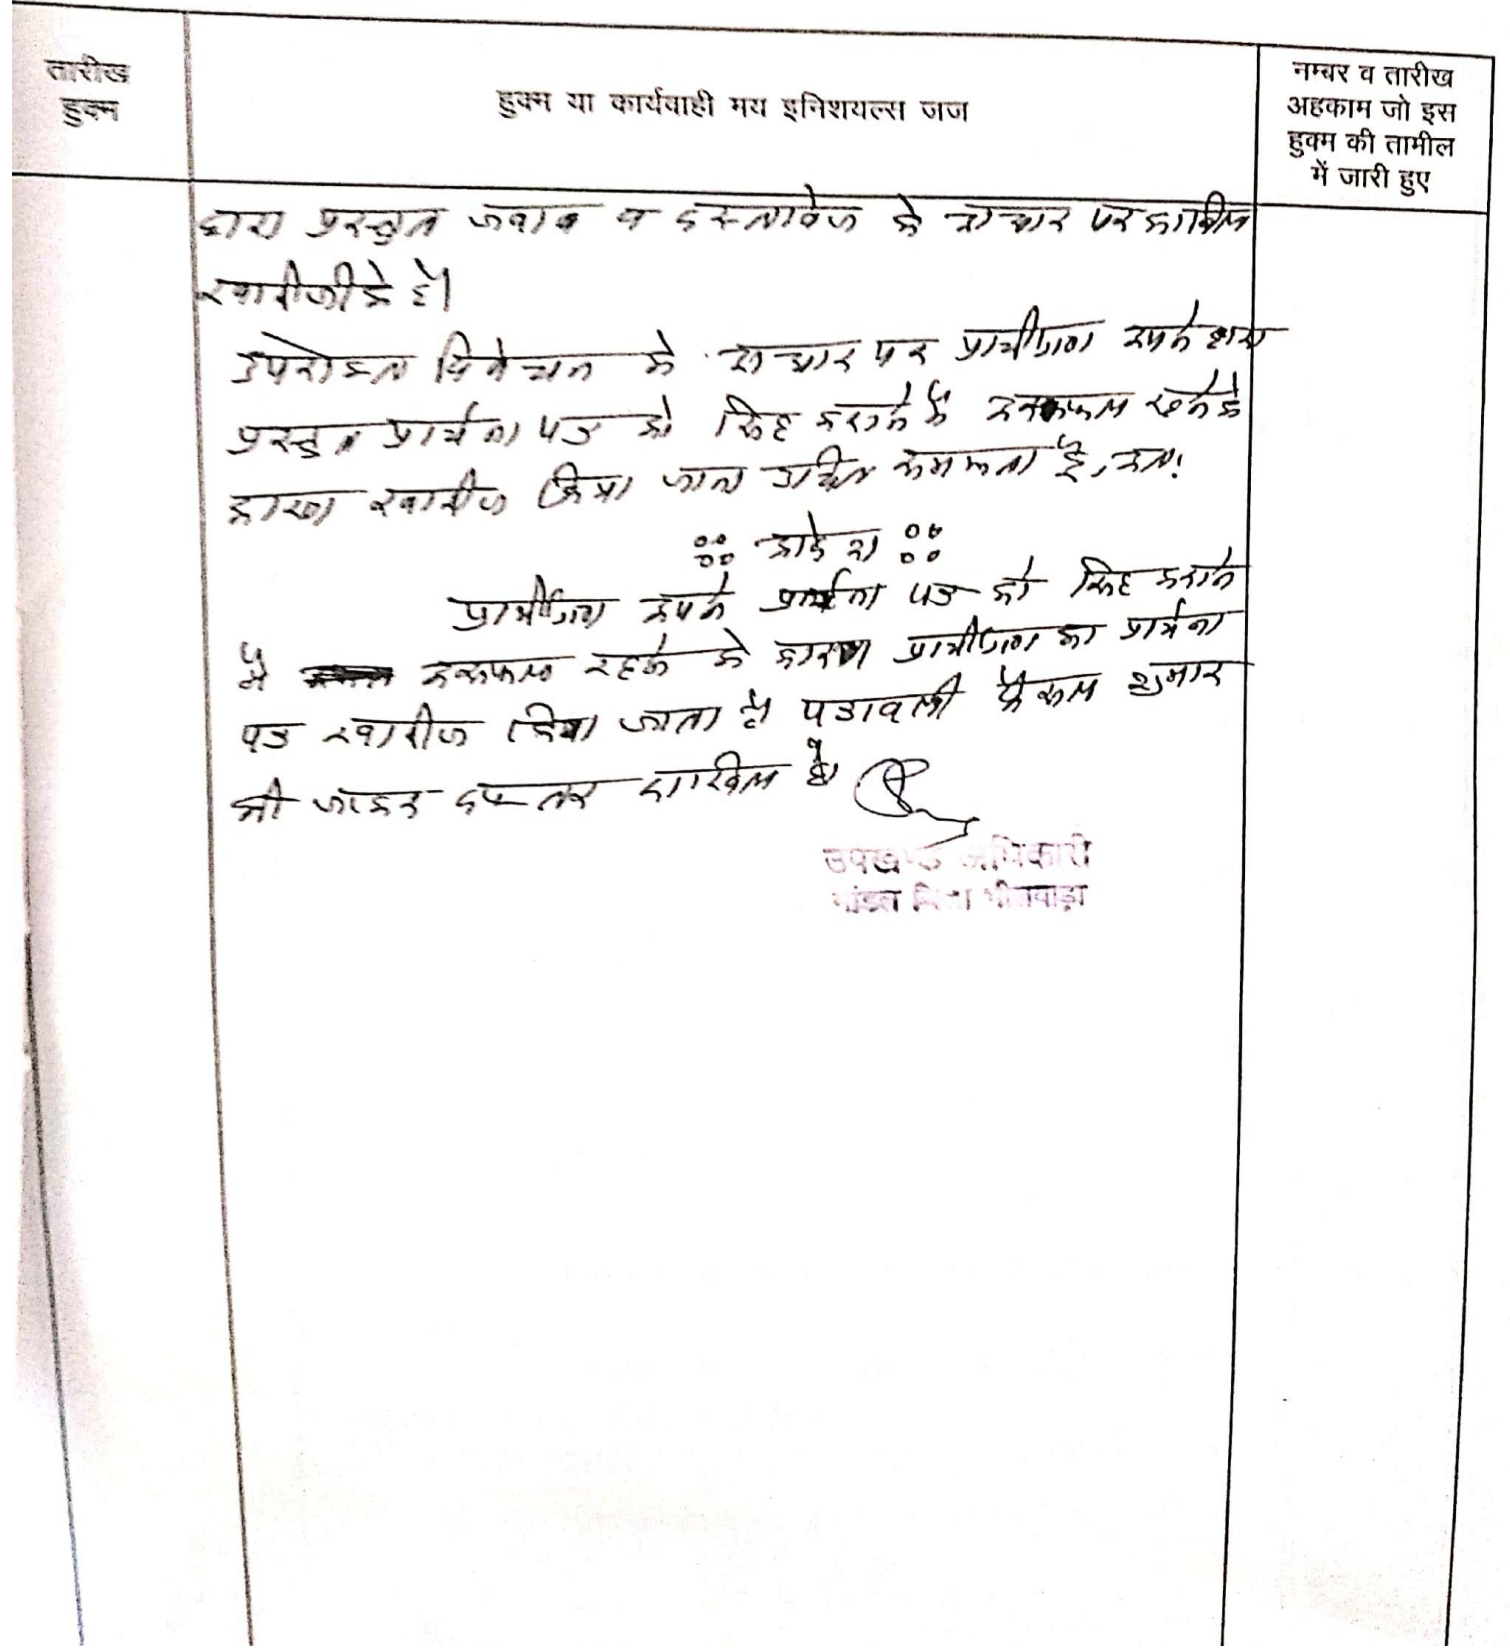 तारीख
हुक्म
हुक्म या कार्यवाही मय इनिशयल्स जज
नम्बर व तारीख
अहकाम जो इस
हुक्म की तामील
में जारी हुए
द्वारा प्रस्तुत जवाब व दस्तावेज के आधार पर काबिल
खारीजी के है।
उपरोक्त विवेचन के आधार पर प्रार्थीगण अपने द्वारा
प्रस्तुत प्रार्थना पत्र को सिद्ध कराने में असफल रहने के
कारण खारीज किया जाना उचित समझता है, अतः
आदेश
प्रार्थीगण अपने प्रार्थना पत्र को सिद्ध कराने
में असफल रहने के कारण प्रार्थीगण का प्रार्थना
पत्र खारीज किया जाता है। पत्रावली फैसल शुमार
की जाकर दफ्तर दाखिल हो।
उपखण्ड अधिकारी
मांडल जिला भीलवाड़ा